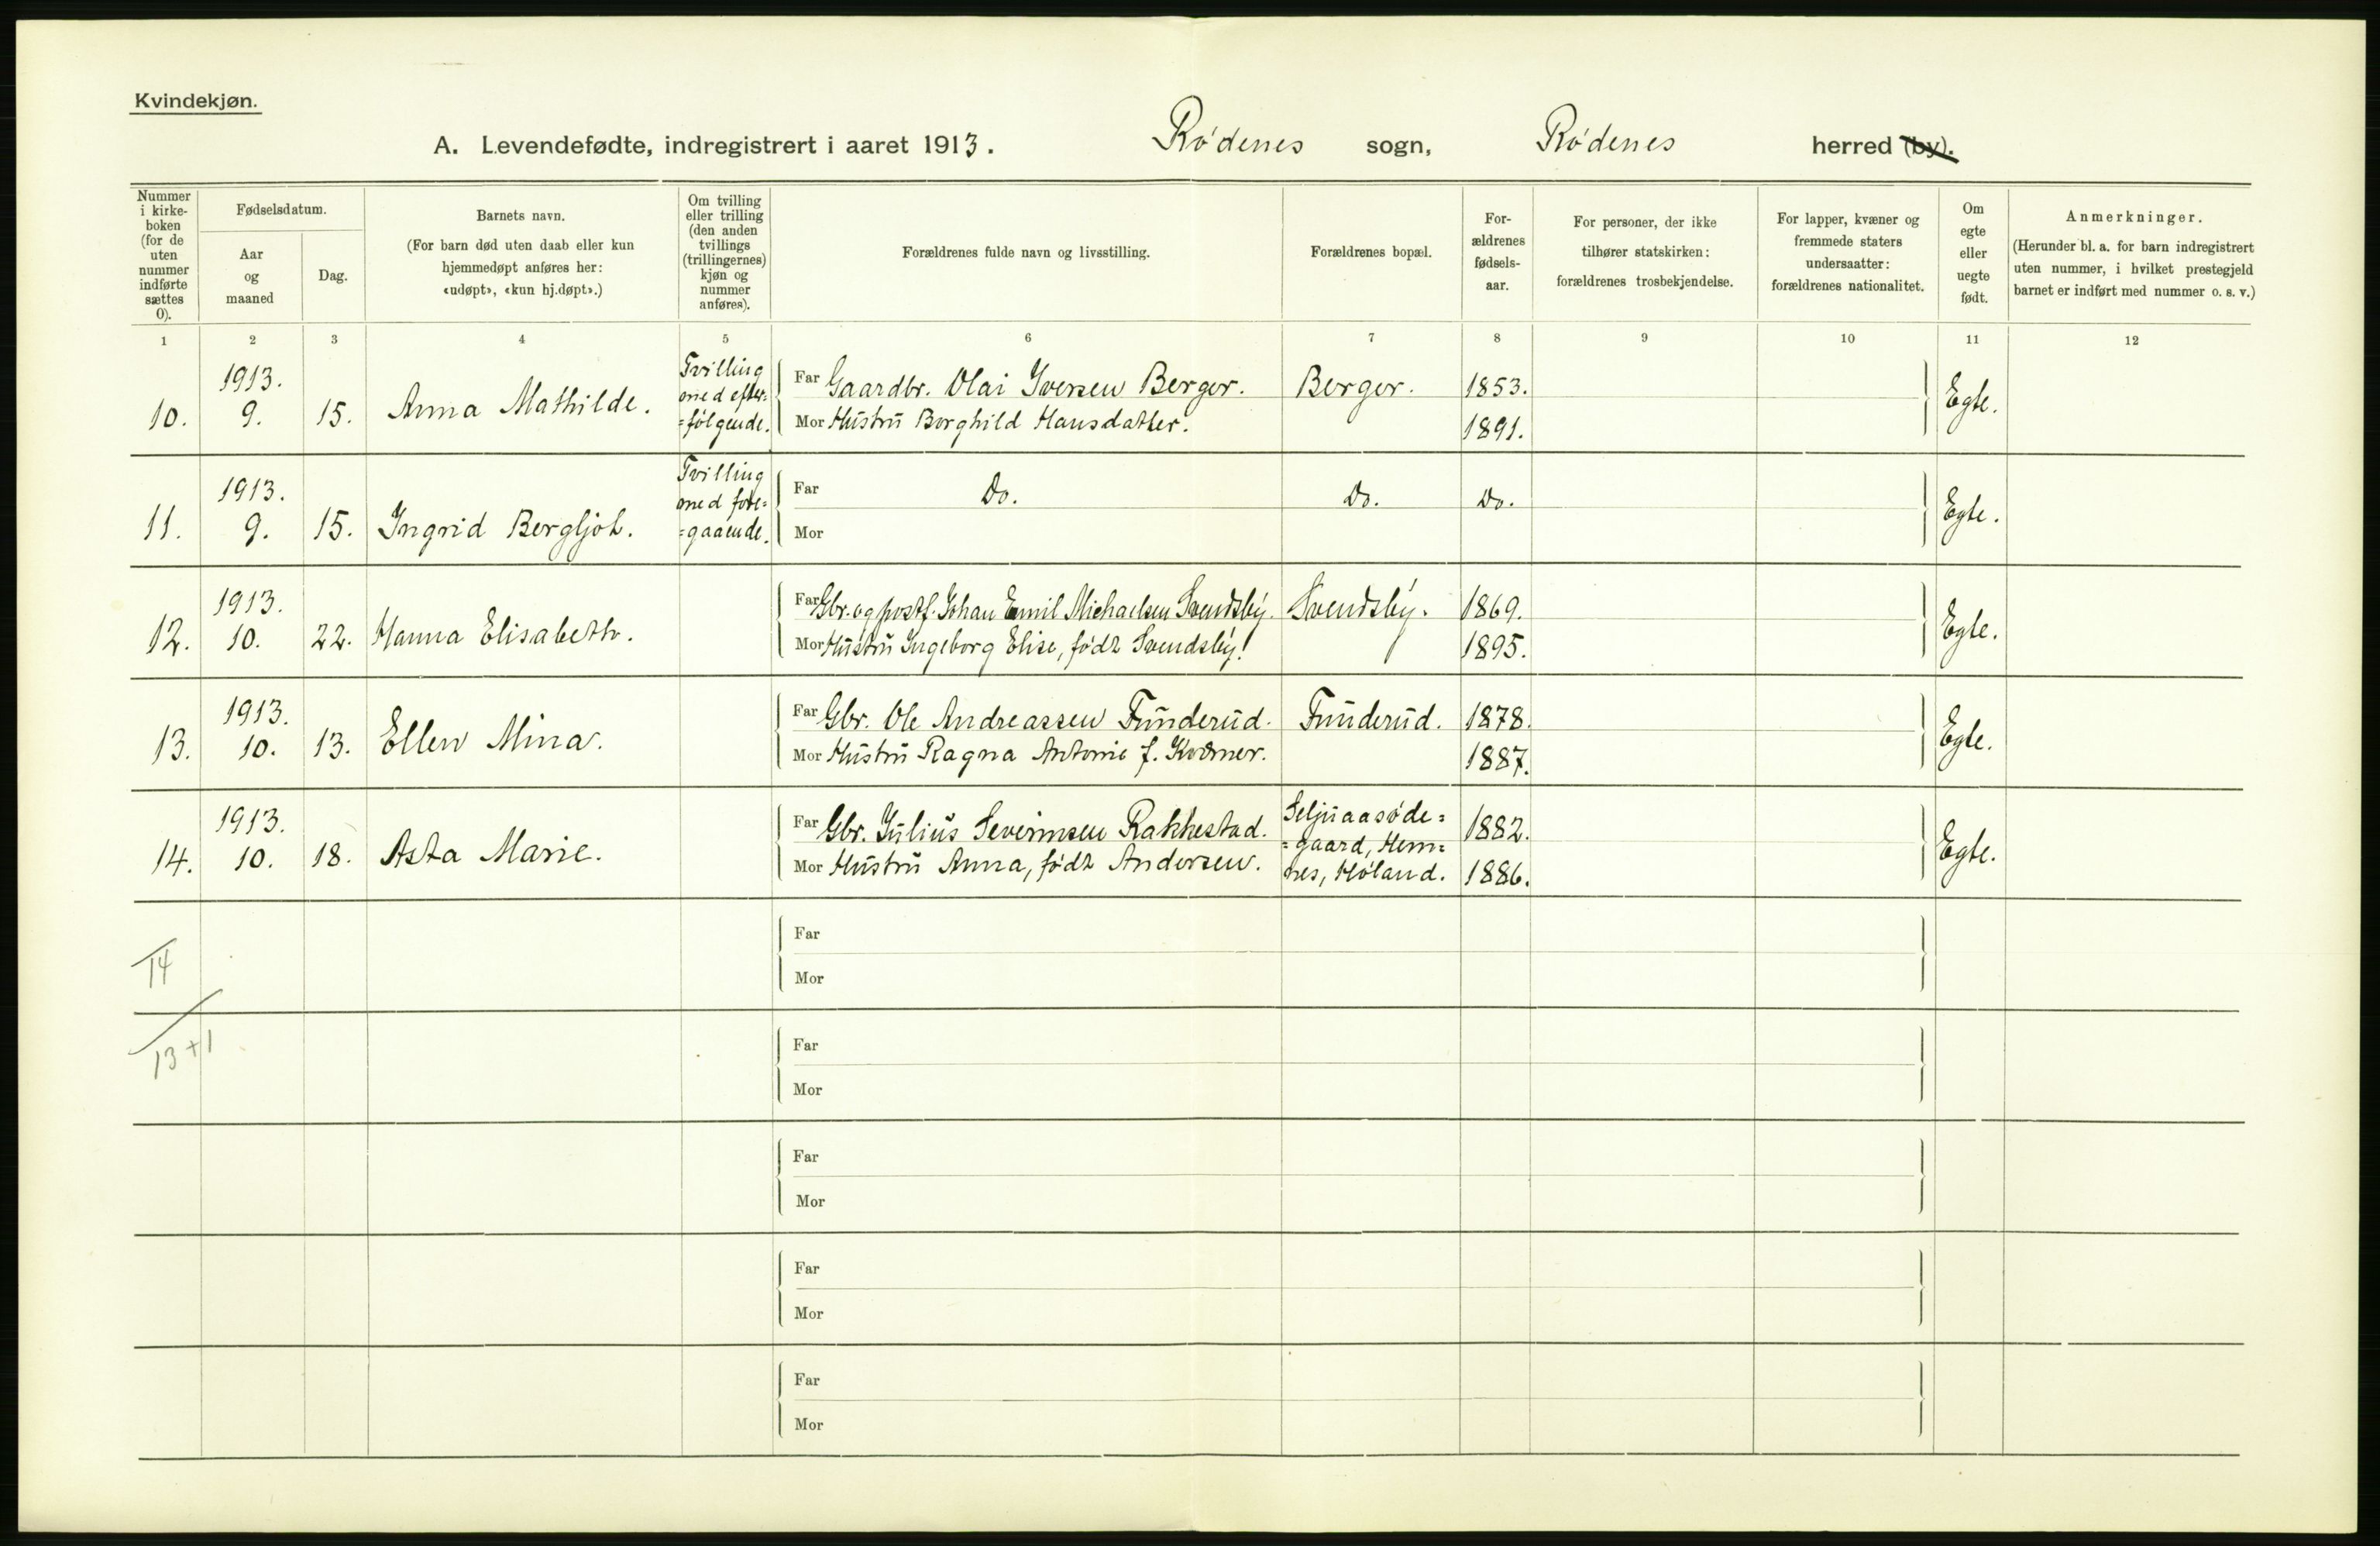 Kvindekjøn.
A. Levendefødte, indregistrert i aaret 1913. Rødenes sogn, Rødenes herred (by).
Nummer i kirke-boken (for de uten nummer indførte sættes 0).
Fødselsdatum.
Aar og maaned
Dag.
Barnets navn.
(For barn død uten daab eller kun
hjemmedøpt anføres her:
«udøpt», «kun hj.døpt».)
Om tvilling
eller trilling
(den anden
tvillings
(trillingernes)
kjøn og
nummer
anføres).
Forældrenes fulde navn og livsstilling.
Forældrenes bopæl.
For-
ældrenes
fødsels-
aar.
For personer, der ikke
tilhører statskirken:
forældrenes trosbekjendelse.
For lapper, kvæner og
fremmede staters
undersaatter:
forældrenes nationalitet.
Om
egte
eller
uegte
født.
Anmerkninger.
(Herunder bl. a. for barn indregistrert
uten nummer, i hvilket prestegjeld
barnet er indført med nummer o. s. v.)
1 2 3 4 5 6 7 8 9 10 11 12
10. 1913. 9. 15. Anna Mathilde.
Tvilling
med efter=
=følgende.
Far Gaardbr. Olai Iversen Berger. Berger. 1853.
Mor Hustru Borghild Hansdatter. 1891. Egte.
11. 1913. 9. 15. Ingrid Bergljot.
Tvilling
med fore=
=gaaende.
Far Do. Do. Do.
Mor Egte.
12. 1913. 10. 22. Hanna Elisabeth.
Far Gbr. og postf. Johan Emil Michaelsen Svendsby. Svendsby. 1869.
Mor Hustru Ingeborg Elise, født Svendsby. 1895. Egte.
13. 1913. 10. 13. Ellen Mina.
Far Gbr. Ole Andreassen Funderud. Funderud. 1878.
Mor Hustru Ragna Antonie f. 1887. Egte.
14. 1913. 10. 18. Asta Marie.
Far Gbr. Julius Severinsen Rakkestad. 1882.
Mor Hustru Anna, født Andersen. 1886. Egte.
Seljuaasøde=
=gaard, Hem=
nes, Høland.
14
13+1
Far
Mor
Far
Mor
Far
Mor
Far
Mor
Far
Mor